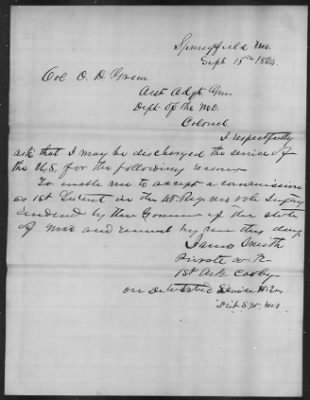 Springfield Mo
Sept 15th 1864
Col O. D. Green
Asst Adgt Gen
Dept of the Mo
Colonel
I respectfully
ask that I may be discharged the service of
the U.S. for the following reasons
To enable me to accept a commission
as 1st Lieut in the Regt Mo Vols
tendered by the Governor of the state
of Mo and received by me this day
James Smith
Private Co
1st Ark Cavlry
on Detached Service
Dist S.W. Mo